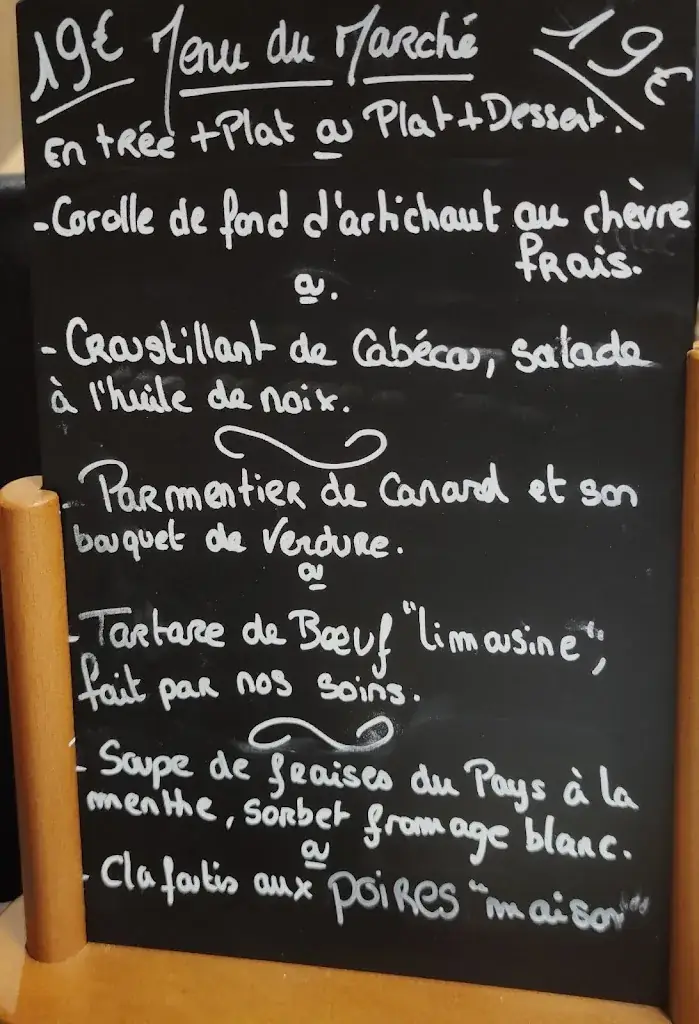 19€ Menu du Marché 19€
Entrée + Plat ou Plat + Dessert.
- Corolle de fond d'artichaut au chèvre
frais.
ou.
- Croustillant de Cabécou, salade
à l'huile de noix.
- Parmentier de Canard et son
bouquet de Verdure.
ou
- Tartare de Bœuf "limousine",
fait par nos soins.
- Soupe de fraises du Pays à la
menthe, sorbet fromage blanc.
ou
- Clafoutis aux POIRES "maison"